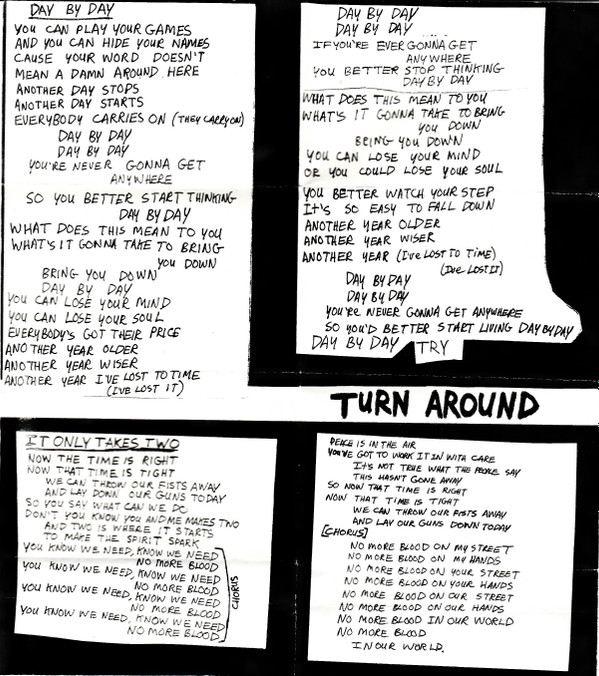 DAY BY DAY
YOU CAN PLAY YOUR GAMES
AND YOU CAN HIDE YOUR NAMES
CAUSE YOUR WORD DOESN'T
MEAN A DAMN AROUND HERE
ANOTHER DAY STOPS
ANOTHER DAY STARTS
EVERYBODY CARRIES ON (THEY CARRY ON)
DAY BY DAY
DAY BY DAY
YOU'RE NEVER GONNA GET
ANYWHERE
SO YOU BETTER START THINKING
DAY BY DAY
WHAT DOES THIS MEAN TO YOU
WHAT'S IT GONNA TAKE TO BRING
YOU DOWN
BRING YOU DOWN
DAY BY DAY
YOU CAN LOSE YOUR MIND
YOU CAN LOSE YOUR SOUL
EVERYBODY'S GOT THEIR PRICE
ANOTHER YEAR OLDER
ANOTHER YEAR WISER
ANOTHER YEAR I'VE LOST TO TIME
(I'VE LOST IT)
DAY BY DAY
DAY BY DAY
IF YOU'RE EVER GONNA GET
ANYWHERE
YOU BETTER STOP THINKING
DAY BY DAY
WHAT DOES THIS MEAN TO YOU
WHAT'S IT GONNA TAKE TO BRING
YOU DOWN
BRING YOU DOWN
YOU CAN LOSE YOUR MIND
OR YOU COULD LOSE YOUR SOUL
YOU BETTER WATCH YOUR STEP
IT'S SO EASY TO FALL DOWN
ANOTHER YEAR OLDER
ANOTHER YEAR WISER
ANOTHER YEAR (I'VE LOST TO TIME)
(I'VE LOST IT)
DAY BY DAY
DAY BY DAY
YOU'RE NEVER GONNA GET ANYWHERE
SO YOU'D BETTER START LIVING DAY BY DAY
DAY BY DAY TRY
TURN AROUND
IT ONLY TAKES TWO
NOW THE TIME IS RIGHT
NOW THAT TIME IS TIGHT
WE CAN THROW OUR FISTS AWAY
AND LAY DOWN OUR GUNS TODAY
SO YOU SAY WHAT CAN WE DO
DON'T YOU KNOW YOU AND ME MAKES TWO
AND TWO IS WHERE IT STARTS
TO MAKE THE SPIRIT SPARK
YOU KNOW WE NEED, KNOW WE NEED
NO MORE BLOOD
YOU KNOW WE NEED, KNOW WE NEED
NO MORE BLOOD
YOU KNOW WE NEED, KNOW WE NEED
NO MORE BLOOD
YOU KNOW WE NEED, KNOW WE NEED
NO MORE BLOOD
CHORUS
PEACE IS IN THE AIR
YOU'VE GOT TO WORK IT IN WITH CARE
IT'S NOT TRUE WHAT THE PEOPLE SAY
THIS HASN'T GONE AWAY
SO NOW THAT TIME IS RIGHT
NOW THAT TIME IS TIGHT
WE CAN THROW OUR FISTS AWAY
AND LAY OUR GUNS DOWN TODAY
[CHORUS]
NO MORE BLOOD ON MY STREET
NO MORE BLOOD ON MY HANDS
NO MORE BLOOD ON YOUR STREET
NO MORE BLOOD ON YOUR HANDS
NO MORE BLOOD ON OUR STREET
NO MORE BLOOD ON OUR HANDS
NO MORE BLOOD IN OUR WORLD
NO MORE BLOOD
IN OUR WORLD.